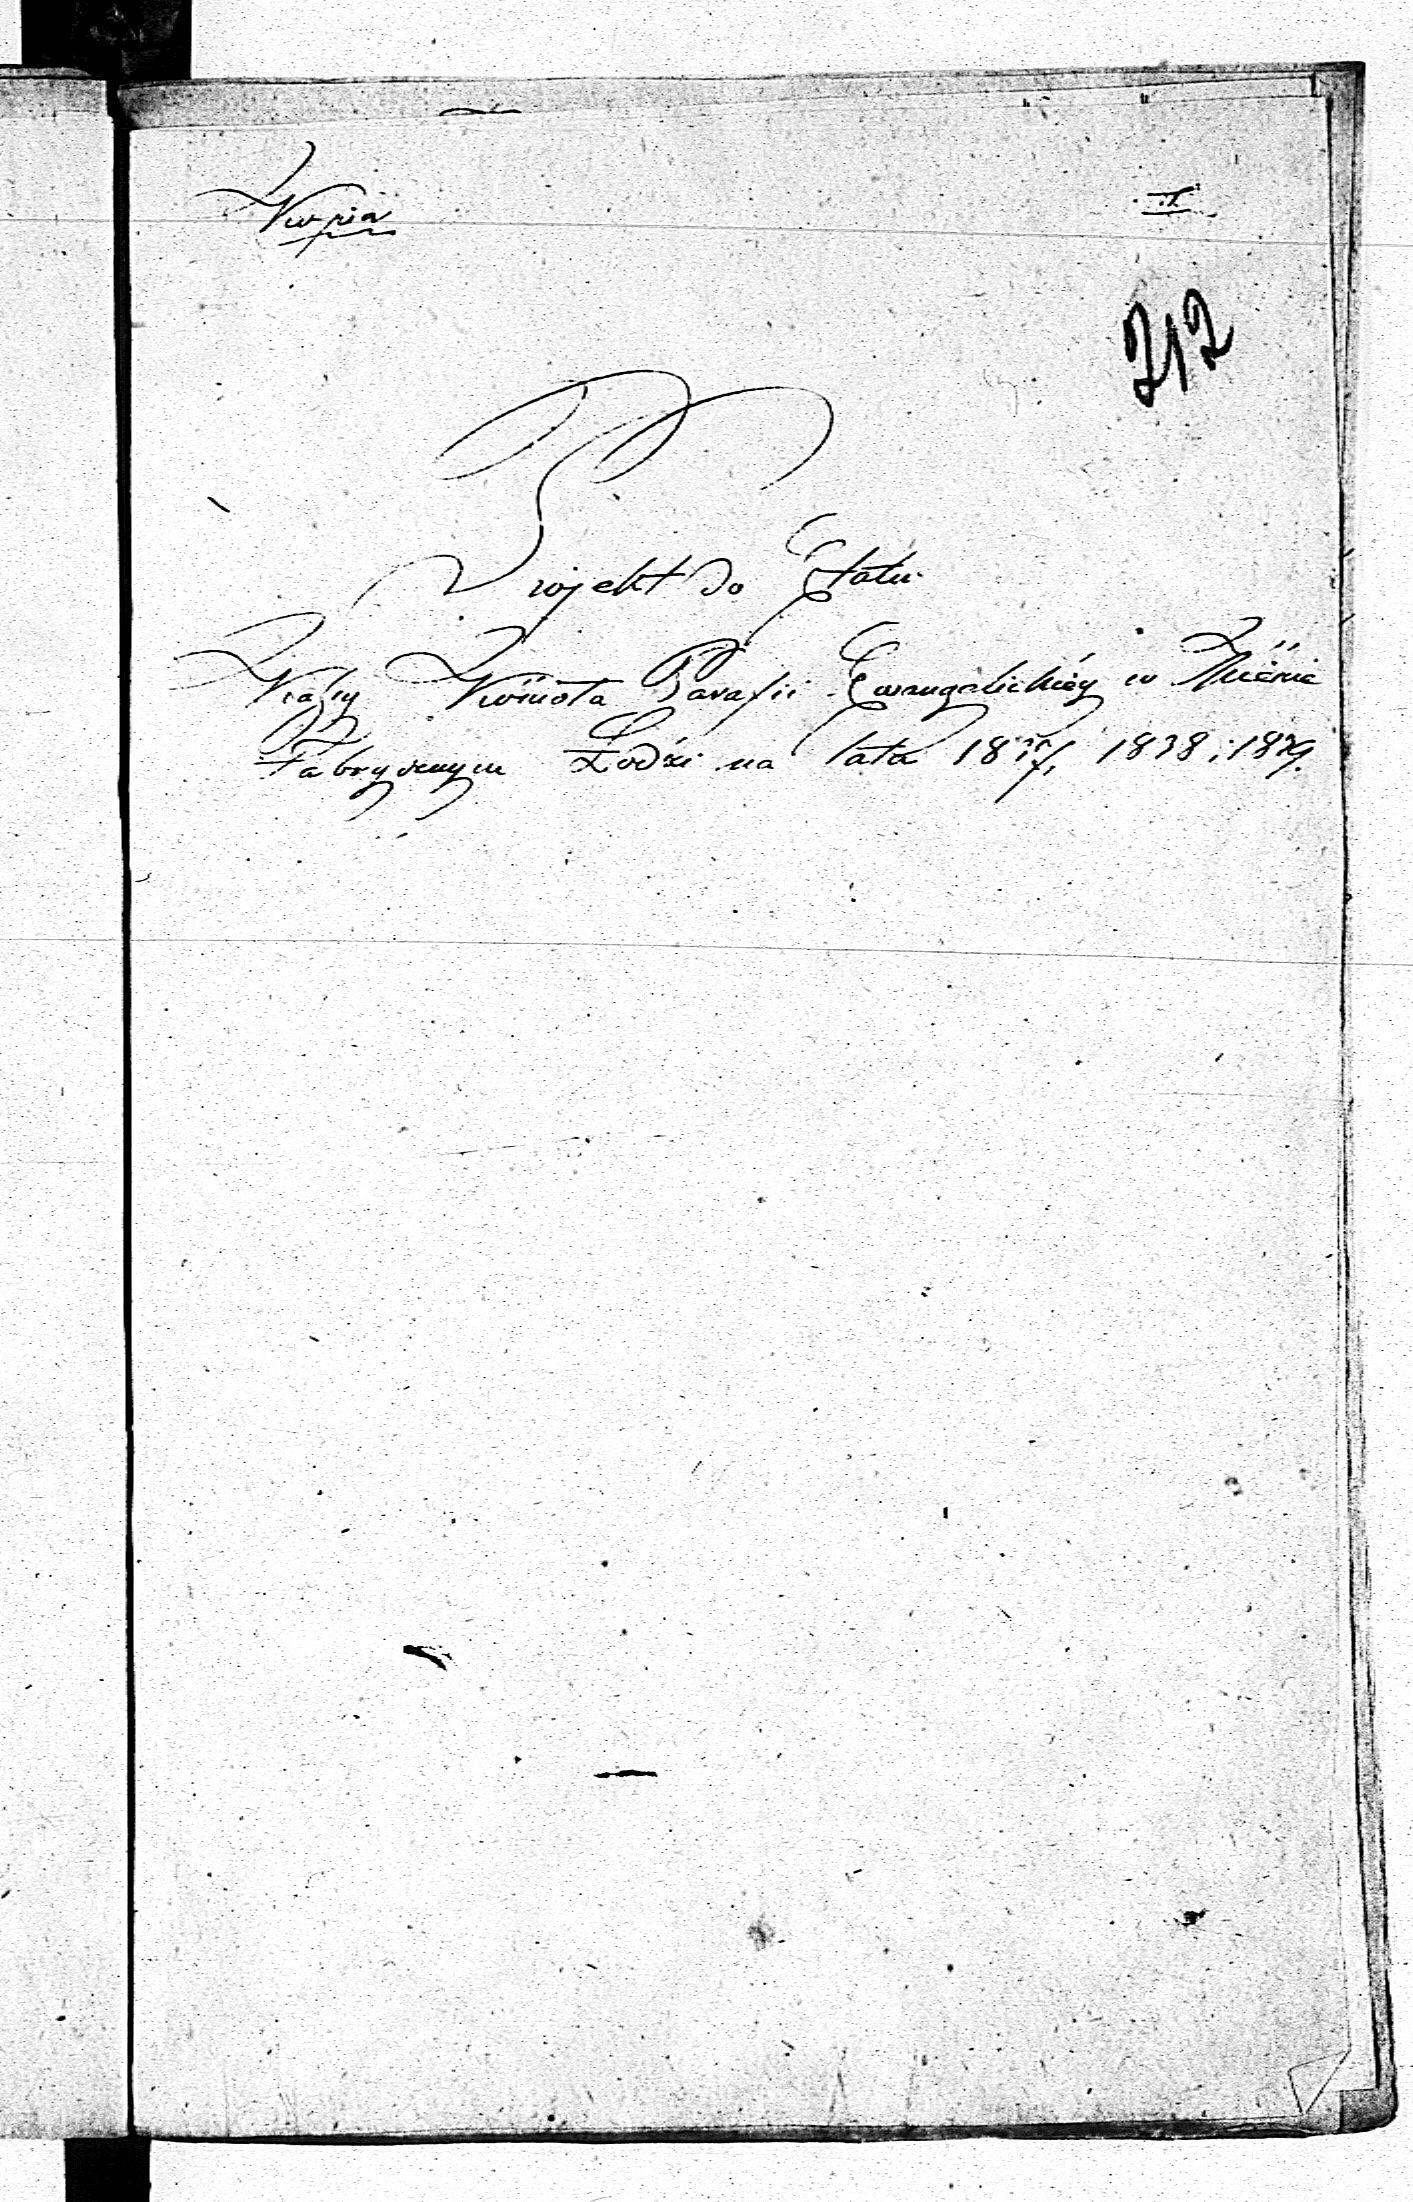 Kopia
II
212
Projekt do Etatu
Kassy Kościoła Parafii Ewangelickiéy w Mieście
Fabrycznym Łodzi na lata 1837, 1838 i 1839.